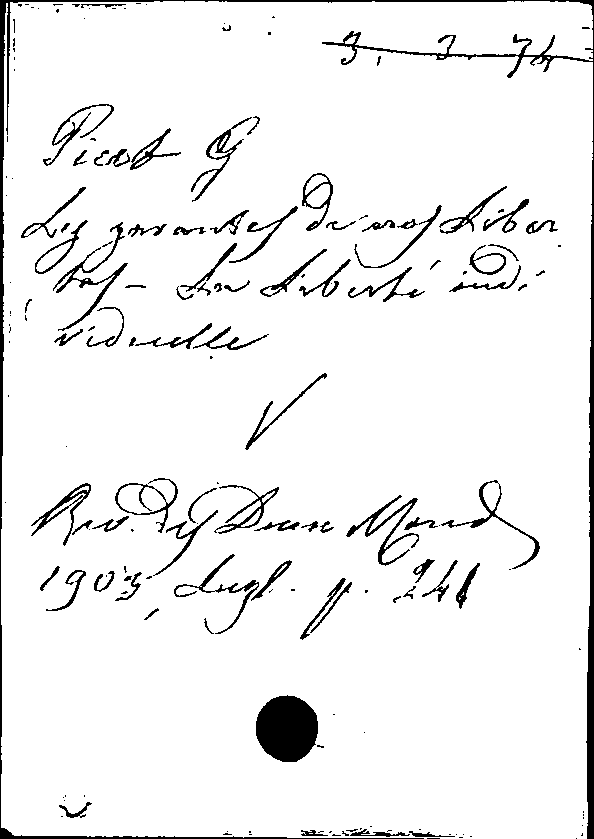 3. 3. 74
Picot G
Les garanties de nos Liber
tés – La Liberté indi
viduelle
V
Rev. des Deux Mond
1903, Lugl. p. 241